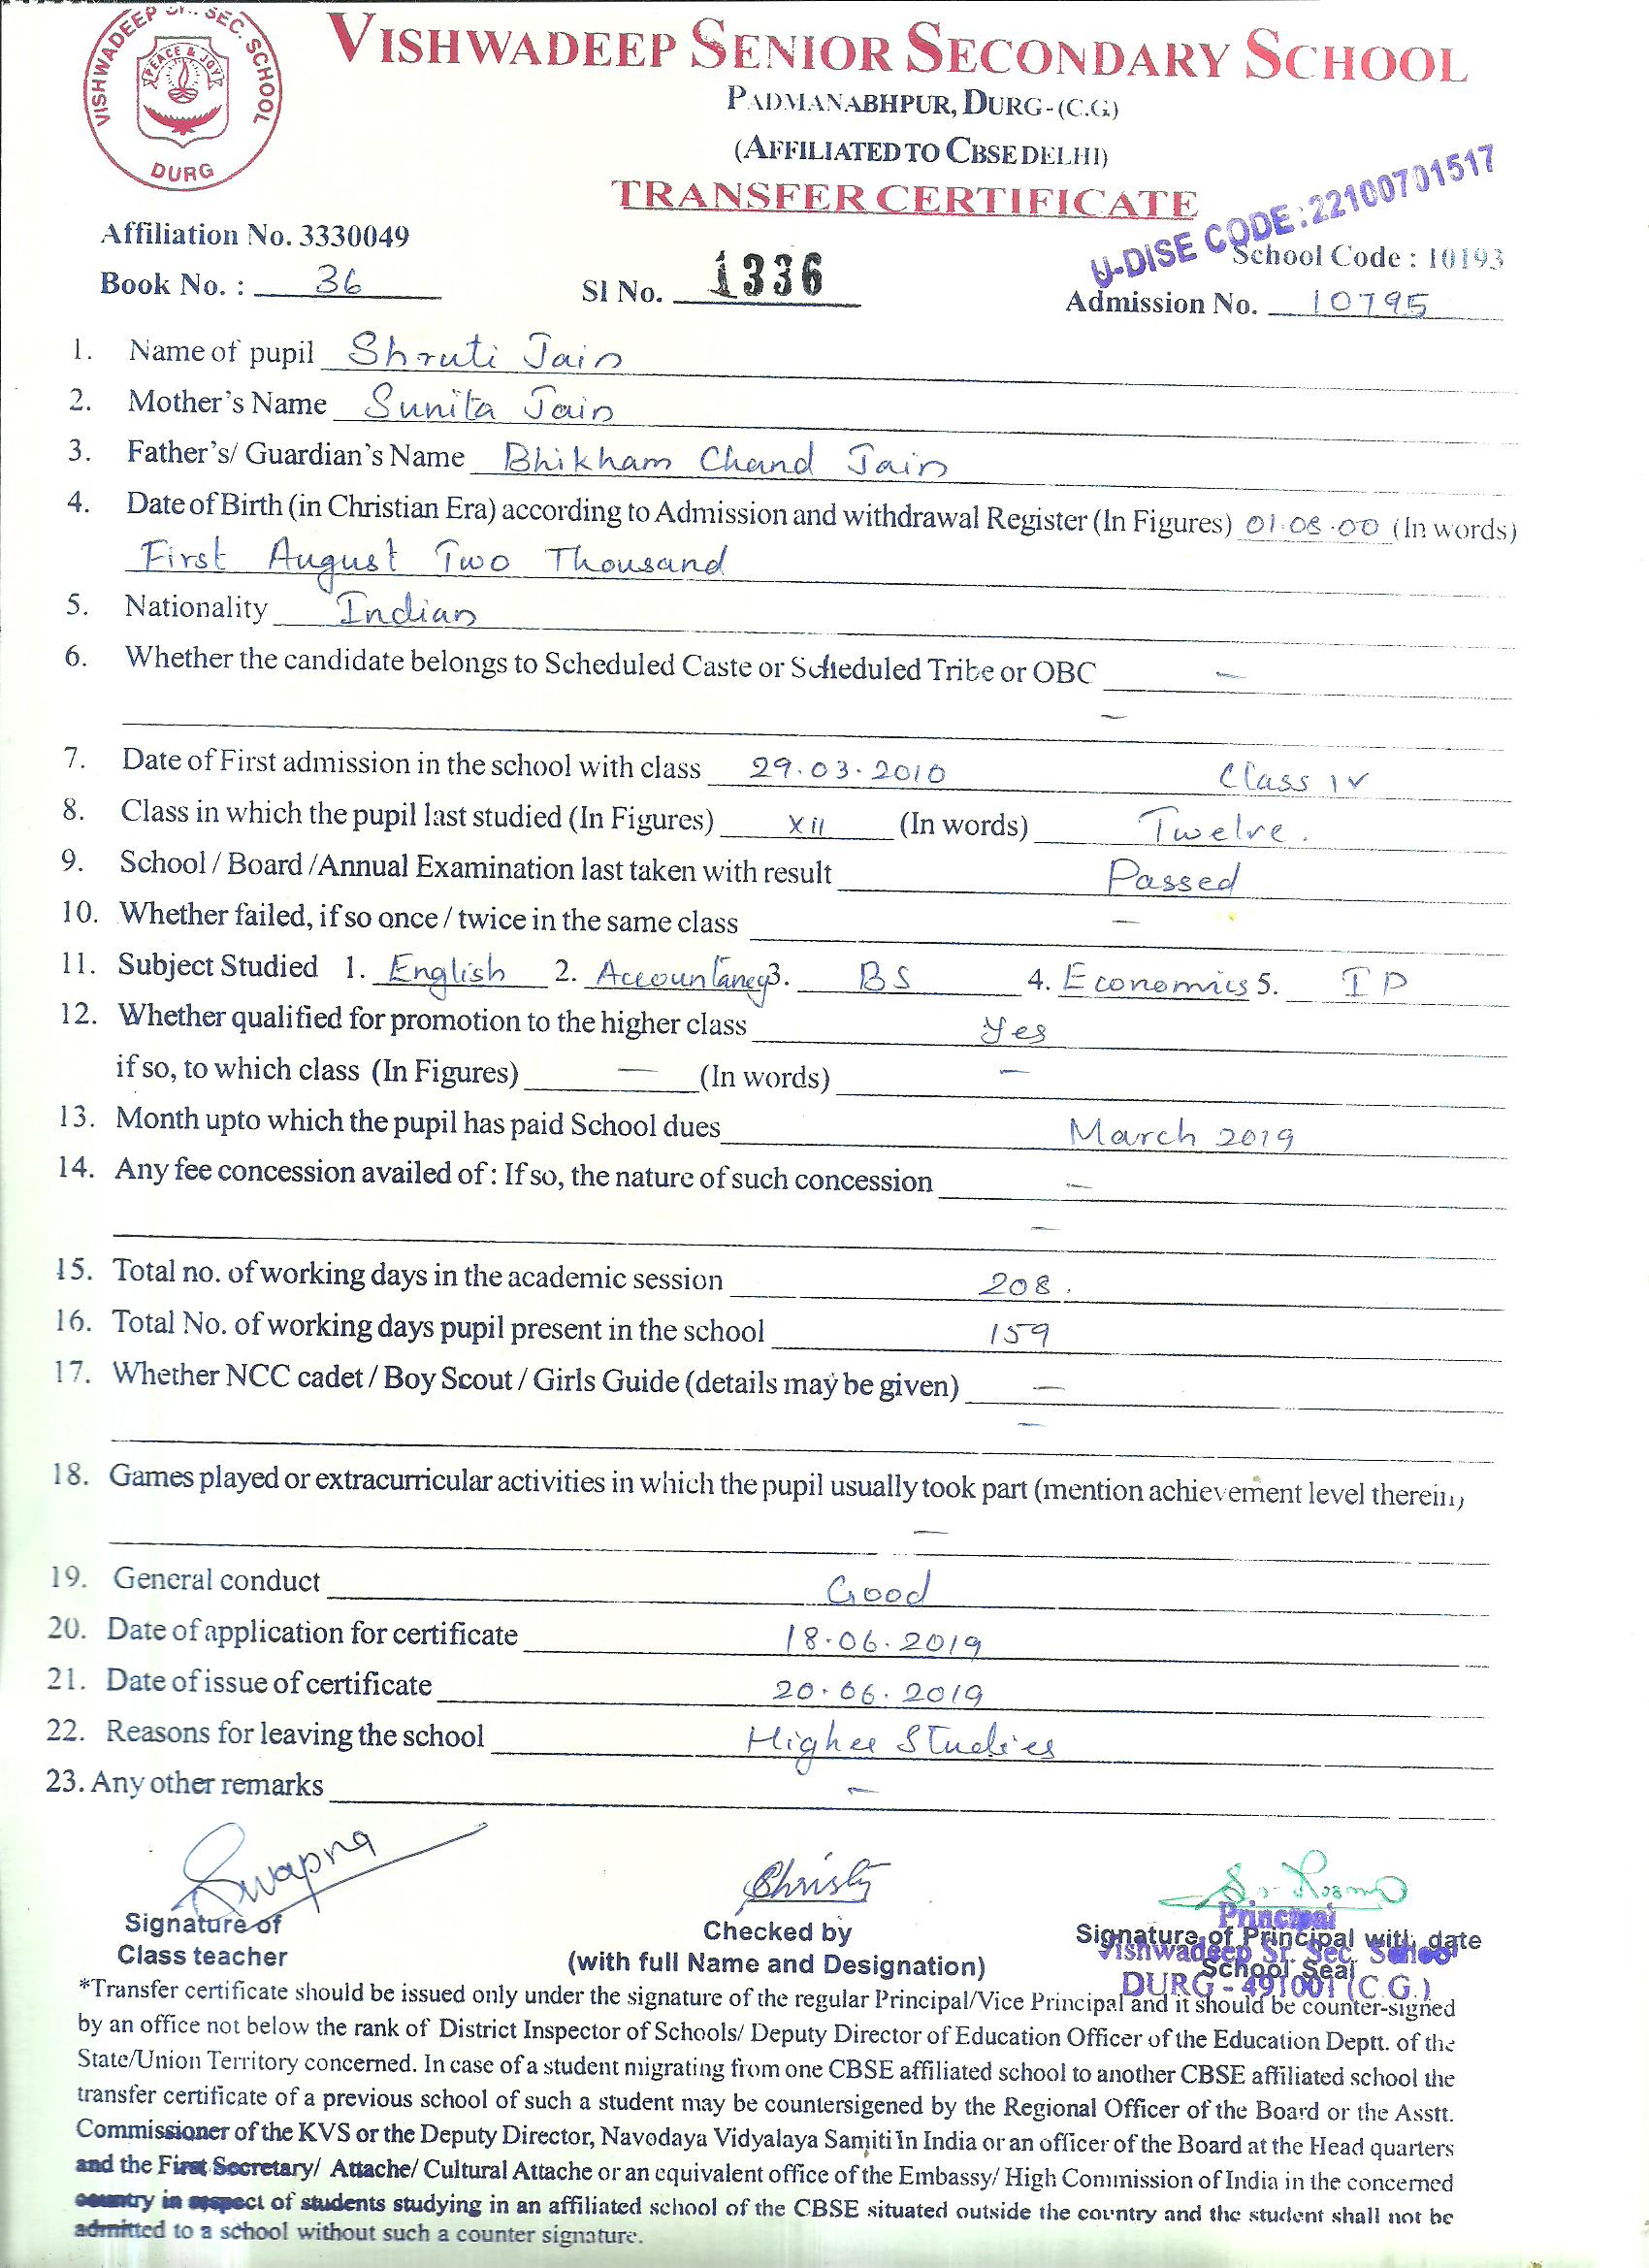 VISHWADEEP SR. SEC. SCHOOL
PEACE & JOY
DURG
VISHWADEEP SENIOR SECONDARY SCHOOL
PADMANABHPUR, DURG-(C.G)
(AFFILIATED TO CBSE DELHI)
TRANSFER CERTIFICATE
U-DISE CODE:22100701517
Affiliation No. 3330049 School Code : 10193
Book No. : 36 Sl No. 1336 Admission No. 10795
1. Name of pupil Shruti Jain
2. Mother's Name Sunita Jain
3. Father's/ Guardian's Name Bhikham Chand Jain
4. Date of Birth (in Christian Era) according to Admission and withdrawal Register (In Figures) 01.08.00 (In words)
First August Two Thousand
5. Nationality Indian
6. Whether the candidate belongs to Scheduled Caste or Scheduled Tribe or OBC —
—
7. Date of First admission in the school with class 29.03.2010 Class IV
8. Class in which the pupil last studied (In Figures) XII (In words) Twelve.
9. School / Board /Annual Examination last taken with result Passed
10. Whether failed, if so once / twice in the same class —
11. Subject Studied 1. English 2. Accountancy 3. BS 4. Economics 5. IP
12. Whether qualified for promotion to the higher class Yes
if so, to which class (In Figures) — (In words) —
13. Month upto which the pupil has paid School dues March 2019
14. Any fee concession availed of : If so, the nature of such concession —
—
15. Total no. of working days in the academic session 208.
16. Total No. of working days pupil present in the school 159
17. Whether NCC cadet / Boy Scout / Girls Guide (details may be given) —
—
18. Games played or extracurricular activities in which the pupil usually took part (mention achievement level therein)
—
19. General conduct Good
20. Date of application for certificate 18.06.2019
21. Date of issue of certificate 20.06.2019
22. Reasons for leaving the school Higher Studies
23. Any other remarks —
Swapna Christy
Signature of Class teacher
Checked by
(with full Name and Designation)
Principal
Signature of Principal with date
Vishwadeep Sr. Sec. School
School Seal
DURG - 491001 (C.G.)
*Transfer certificate should be issued only under the signature of the regular Principal/Vice Principal and it should be counter-signed
by an office not below the rank of District Inspector of Schools/ Deputy Director of Education Officer of the Education Deptt. of the
State/Union Territory concerned. In case of a student migrating from one CBSE affiliated school to another CBSE affiliated school the
transfer certificate of a previous school of such a student may be countersigened by the Regional Officer of the Board or the Asstt.
Commissioner of the KVS or the Deputy Director, Navodaya Vidyalaya Samiti in India or an officer of the Board at the Head quarters
and the First Secretary/ Attache/ Cultural Attache or an equivalent office of the Embassy/ High Commission of India in the concerned
country in respect of students studying in an affiliated school of the CBSE situated outside the country and the student shall not be
admitted to a school without such a counter signature.